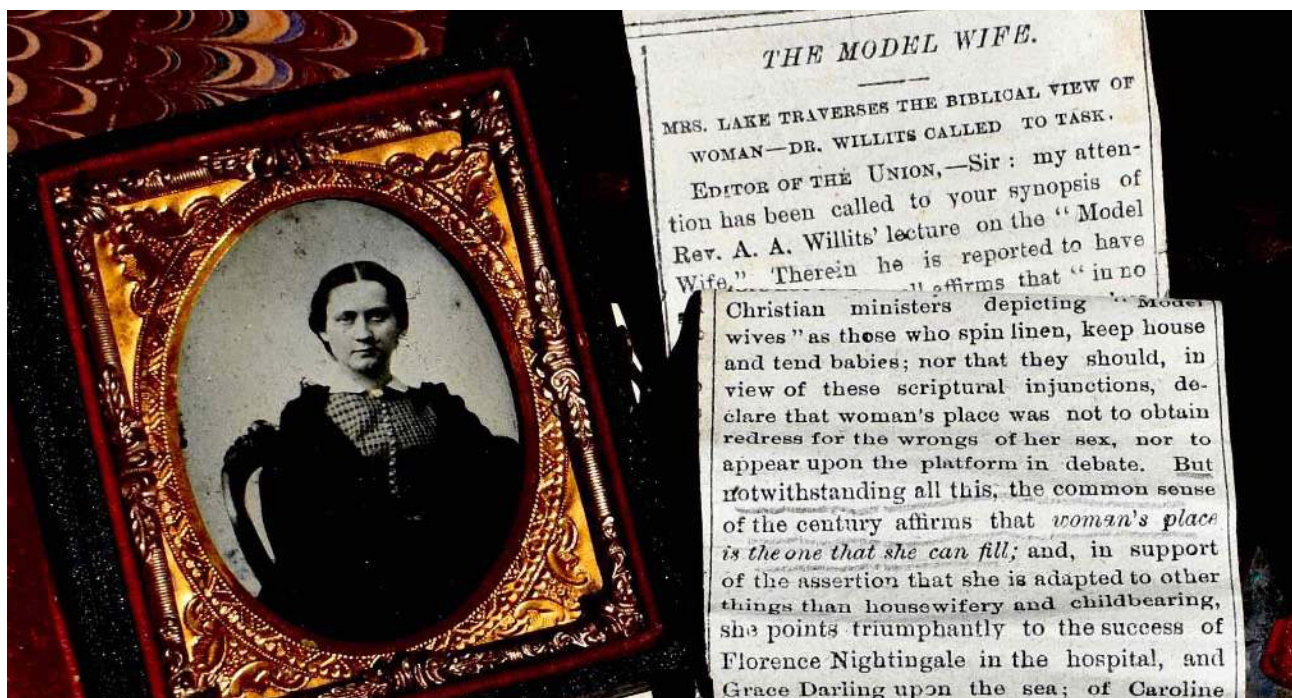 THE MODEL WIFE.
MRS. LAKE TRAVERSES THE BIBLICAL VIEW OF
WOMAN—DR. WILLITS CALLED TO TASK.
EDITOR OF THE UNION,—Sir: my atten-
tion has been called to your synopsis of
Rev. A. A. Willits' lecture on the "Model
Wife." Therein he is reported to have
affirms that "in no
Christian ministers depicting "Model
wives" as those who spin linen, keep house
and tend babies; nor that they should, in
view of these scriptural injunctions, de-
clare that woman's place was not to obtain
redress for the wrongs of her sex, nor to
appear upon the platform in debate. But
notwithstanding all this, the common sense
of the century affirms that woman's place
is the one that she can fill; and, in support
of the assertion that she is adapted to other
things than housewifery and childbearing,
she points triumphantly to the success of
Florence Nightingale in the hospital, and
Grace Darling upon the sea; of Caroline